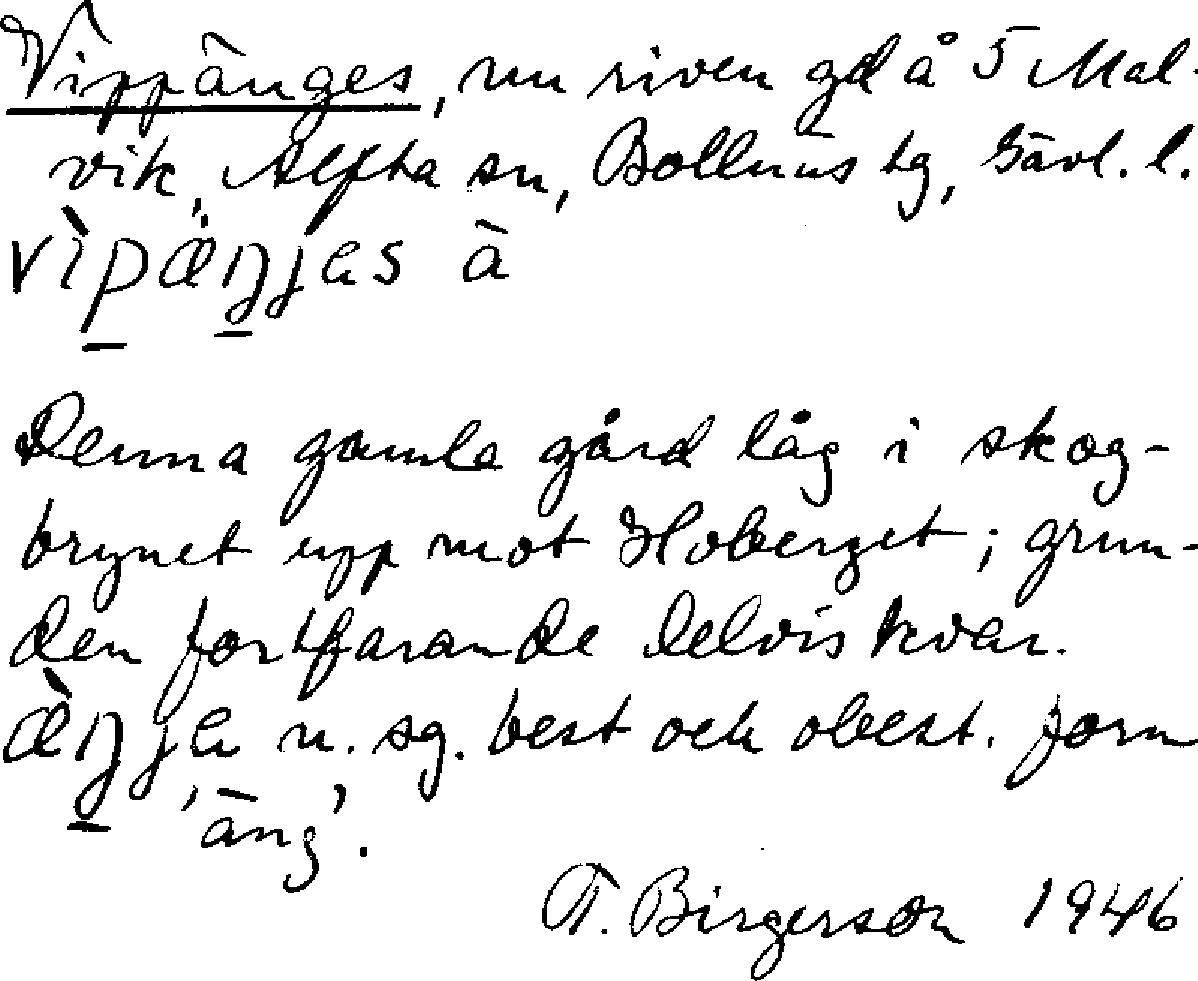 Vippänges, nu riven gd å 5 Mal-
vik, Alfta sn, Bollnäs tg, Gävl. l.
vìpæŋjas ä
Denna gamla gård låg i skog-
brynet upp mot Hoberget; grun-
den fortfarande delvis kvar.
æ̀ŋja n. sg. best och obest. form
'äng'.
T. Birgerson 1946